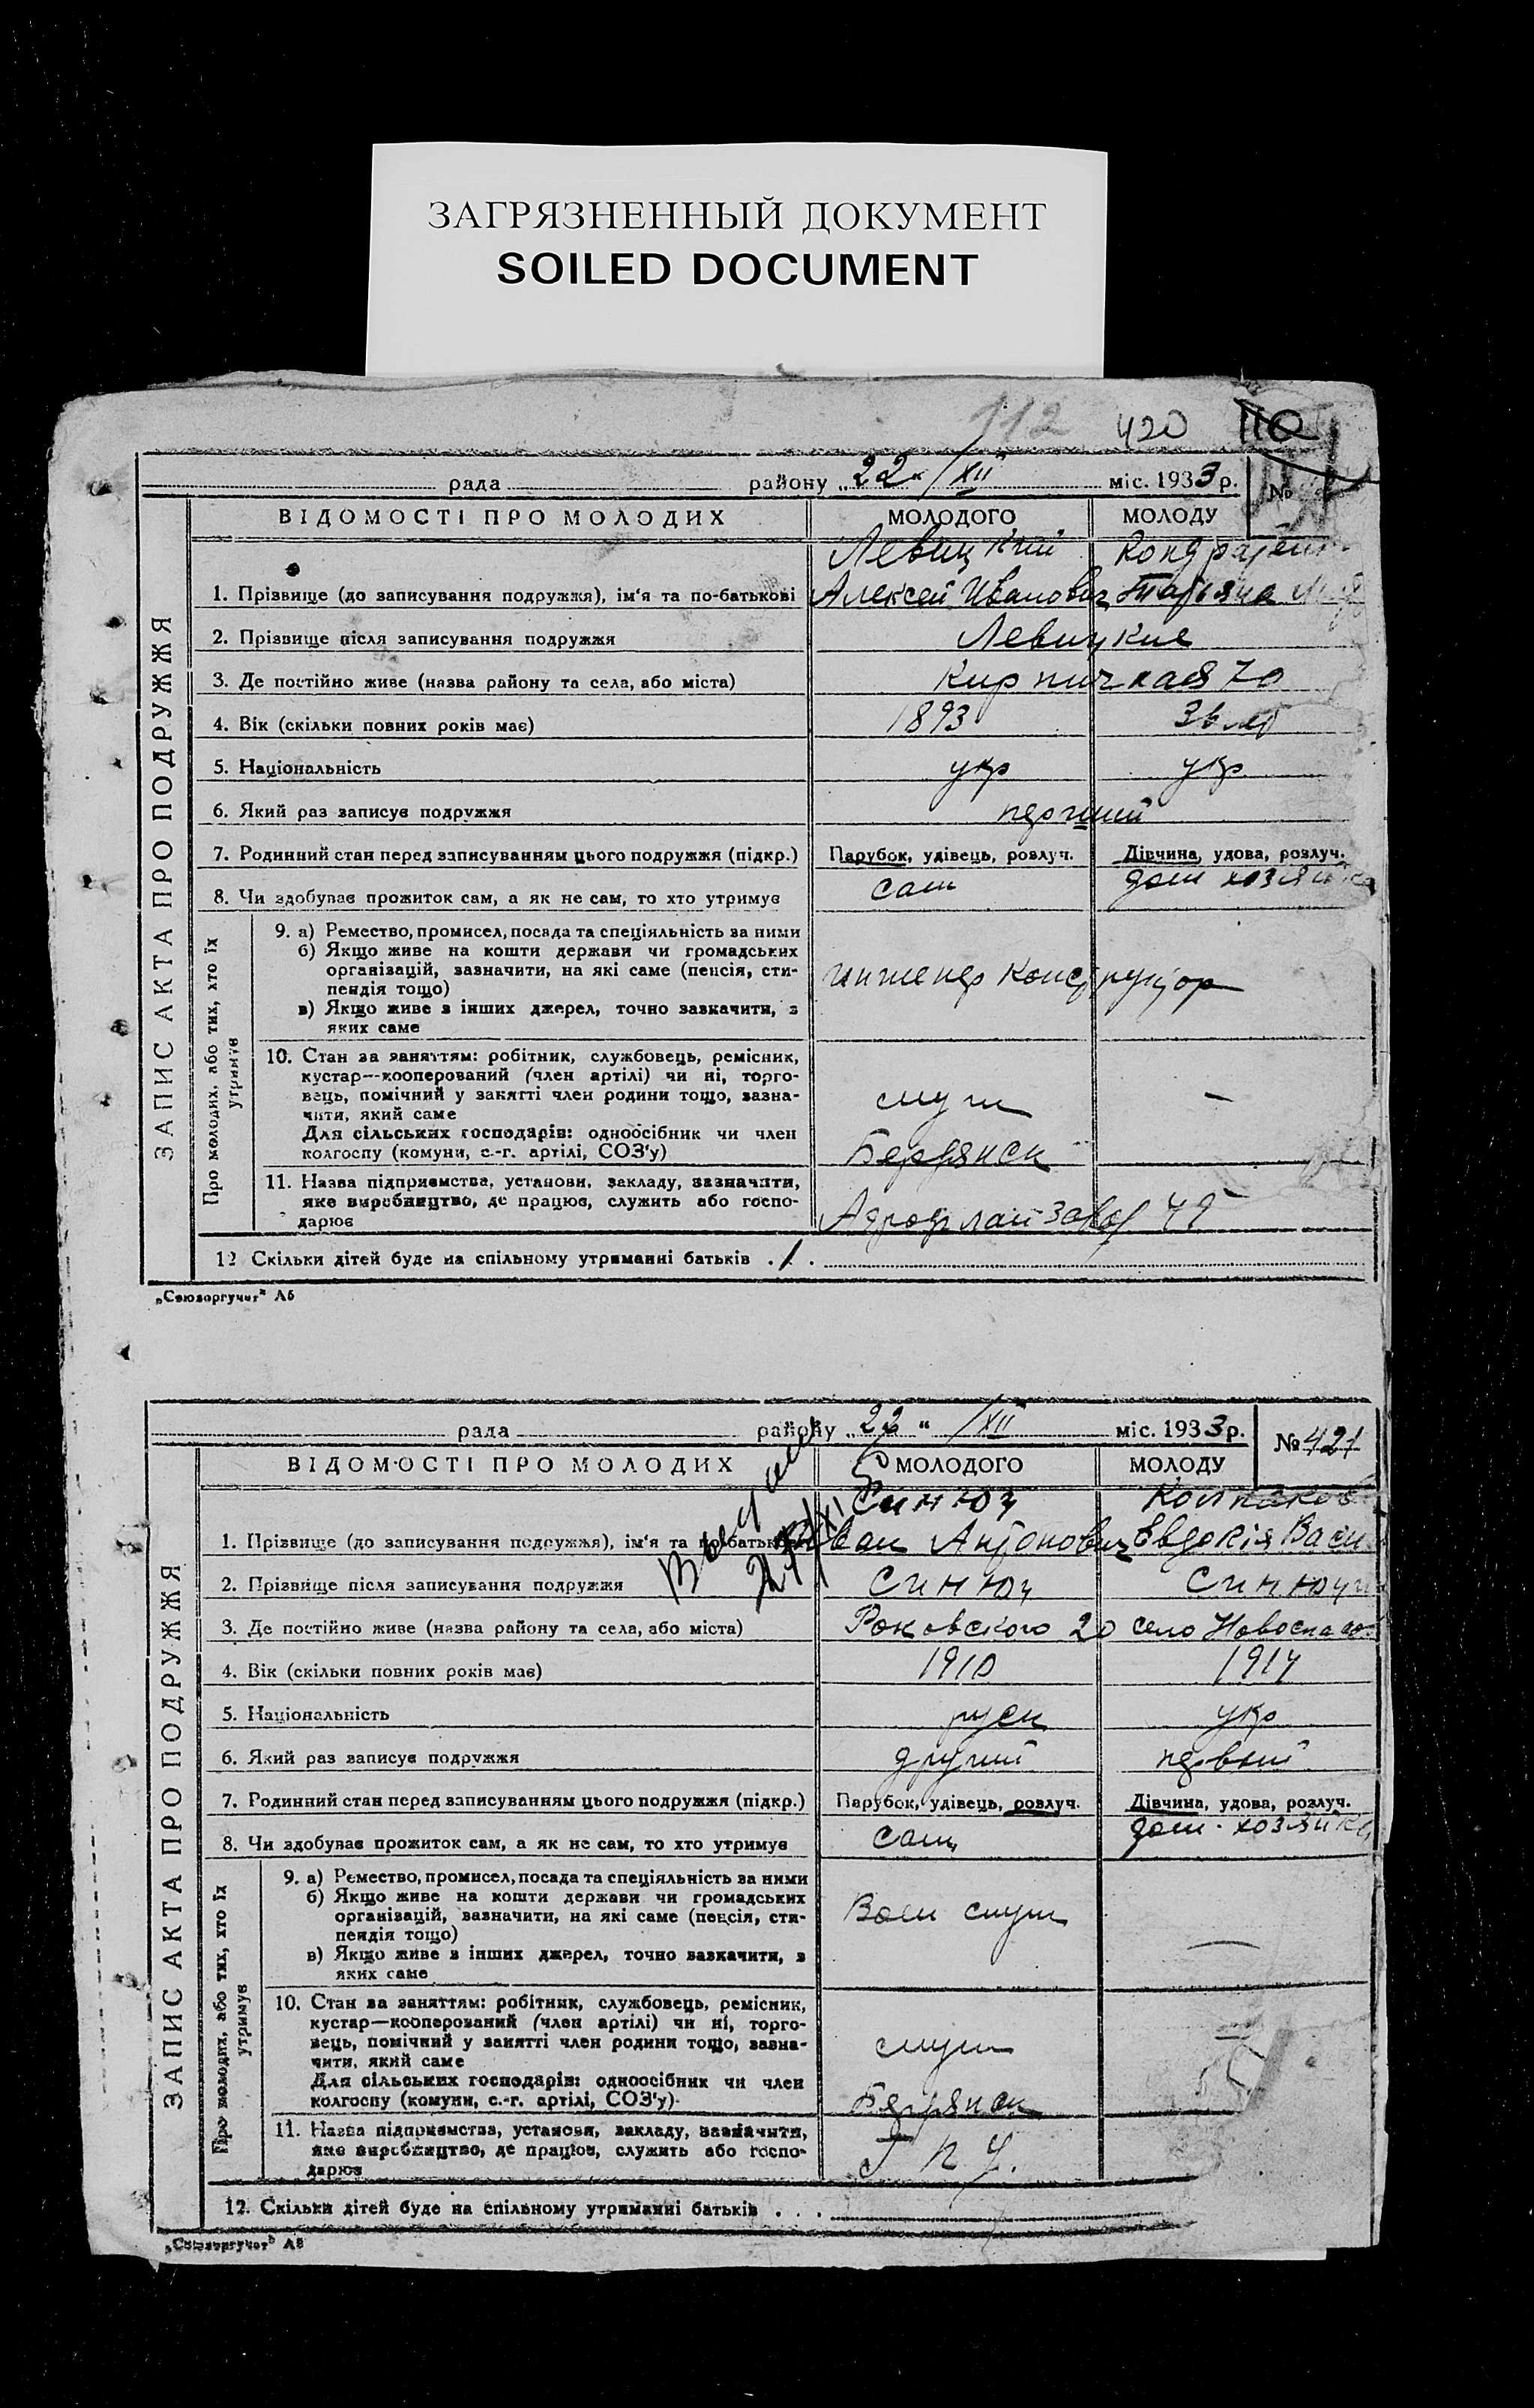 ЗАГРЯЗНЕННЫЙ ДОКУМЕНТ
SOILED DOCUMENT
112 420 110
рада району „22“ /XII міс. 1933 р. №
ВІДОМОСТІ ПРО МОЛОДИХ МОЛОДОГО МОЛОДУ
ЗАПИС АКТА ПРО ПОДРУЖЖЯ
Левицкий
1. Прізвище (до записування подружжя), ім‘я та по-батькові Алексей Иванович Татьяна
2. Прізвище після записування подружжя Левицкие
3. Де постійно живе (назва району та села, або міста) Кирпичная 70
4. Вік (скільки повних років має) 1893
5. Національність укр укр
6. Який раз записує подружжя перший
7. Родинний стан перед записуванням цього подружжя (підкр.) Парубок, удівець, розлуч. Дівчина, удова, розлуч.
8. Чи здобуває прожиток сам, а як не сам, то хто утримує сам дом хозяйка
Про молодих, або тих, хто їх утримує
9. а) Ремество, промисел, посада та спеціяльність за ними
б) Якщо живе на кошти держави чи громадських
організацій, зазначити, на які саме (пенсія, сти-
пендія тощо) инженер конструктор
в) Якщо живе з інших джерел, точно зазначити, з
яких саме
10. Стан за заняттям: робітник, службовець, ремісник,
кустар—кооперований (член артілі) чи ні, торго-
вець, помічний у занятті член родини тощо, зазна- служ —
чити, який саме
Для сільських господарів: одноосібник чи член
колгоспу (комуни, с.-г. артілі, СОЗ'у) Бердянск
11. Назва підприємства, установи, закладу, зазначити,
яке виробництво, де працює, служить або госпо-
дарює завод
12 Скільки дітей буде на спільному утриманні батьків . 1 .
„Союзоргучет“ А5
рада району „22“ /XII міс. 1933 р. № 421
ВІДОМОСТІ ПРО МОЛОДИХ МОЛОДОГО МОЛОДУ
ЗАПИС АКТА ПРО ПОДРУЖЖЯ
Синюч
1. Прізвище (до записування подружжя), ім‘я та по-батькові Иван Антонович Евдокія Васи
2. Прізвище після записування подружжя Синюч Синюч
3. Де постійно живе (назва району та села, або міста) Роковского 20 село Новоспасов
4. Вік (скільки повних років має) 1910 1914
5. Національність руск укр
6. Який раз записує подружжя другий первый
7. Родинний стан перед записуванням цього подружжя (підкр.) Парубок, удівець, розлуч. Дівчина, удова, розлуч.
8. Чи здобуває прожиток сам, а як не сам, то хто утримує сам дом. хозяйка
Про молодих, або тих, хто їх утримує
9. а) Ремество, промисел, посада та спеціяльність за ними
б) Якщо живе на кошти держави чи громадських
організацій, зазначити, на які саме (пенсія, сти- Воен служ
пендія тощо)
в) Якщо живе з інших джерел, точно зазначити, з —
яких саме
10. Стан за заняттям: робітник, службовець, ремісник,
кустар—кооперований (член артілі) чи ні, торго-
вець, помічний у занятті член родини тощо, зазна- служ —
чити, який саме
Для сільських господарів: одноосібник чи член
колгоспу (комуни, с.-г. артілі, СОЗ'у) Бердянск
11. Назва підприємства, установи, закладу, зазначити,
яке виробництво, де працює, служить або госпо- Г П У.
дарює
12. Скільки дітей буде на спільному утриманні батьків . . .
„Союзоргучет“ А5